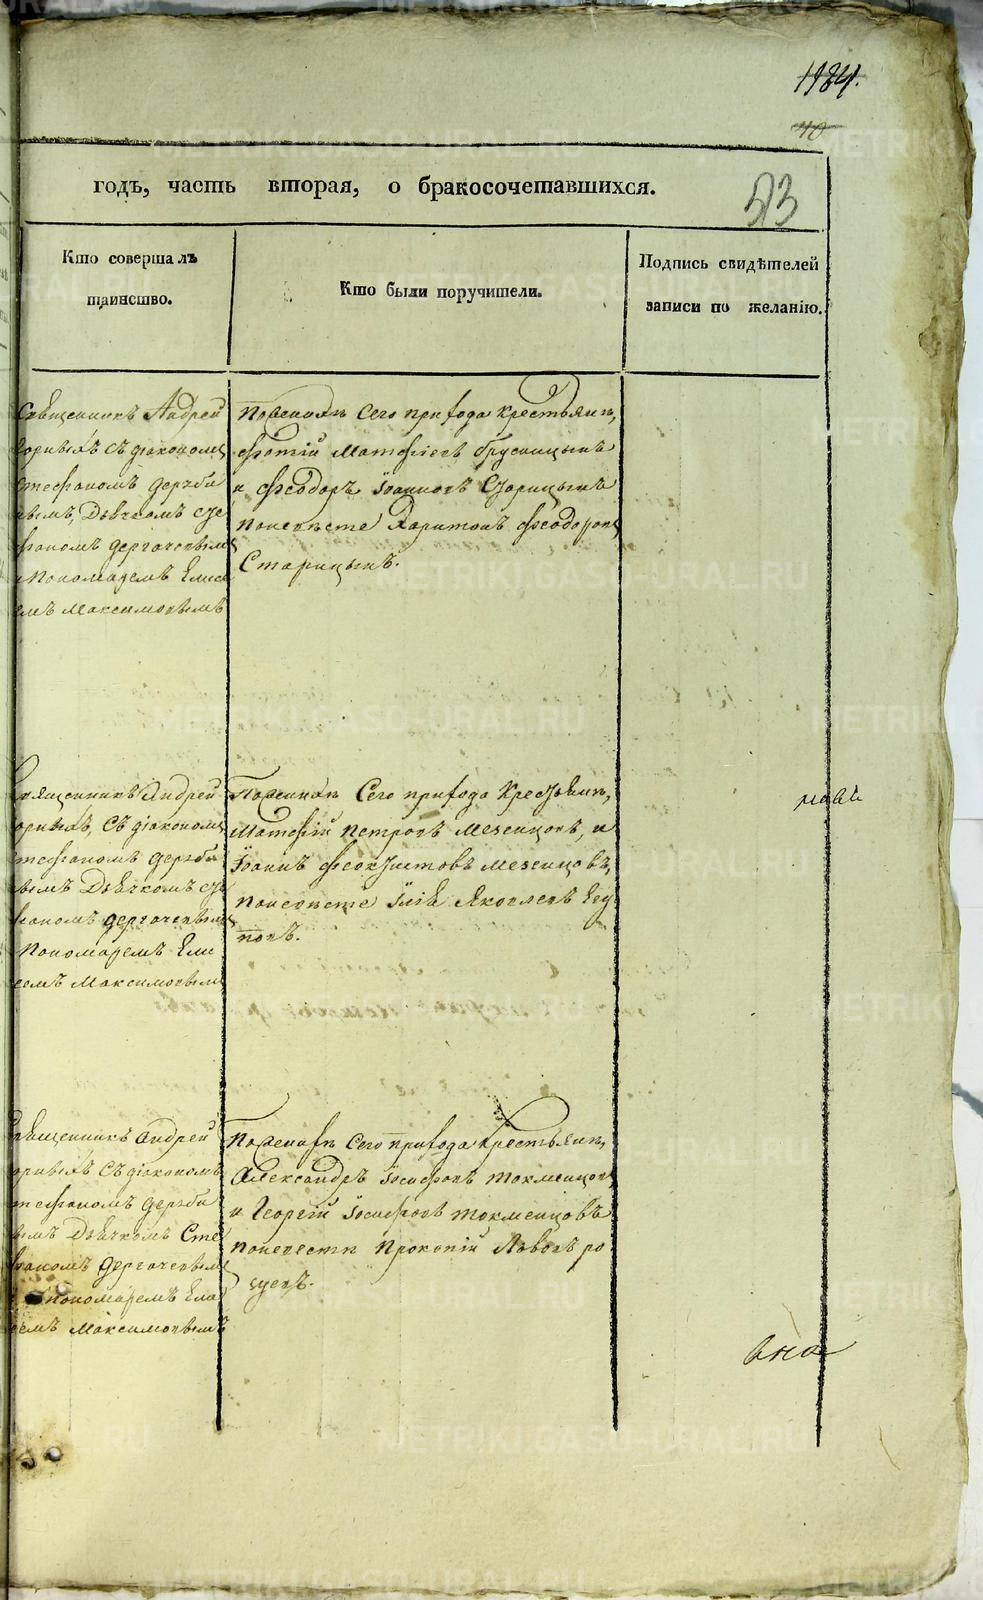 1124.
40
годъ, часть вторая, о бракосочетавшихся.
53
Кто совершалъ
таинство.
Кто были поручители.
Подпись свидѣтелей
записи по желанію.
Священникъ Андрей
съ діакономъ
Стефаномъ
Дьячкомъ Сте
фаномъ Дергачевымъ
Пономаремъ Елисе
емъ Максимовымъ
Поженихѣ Сего прихода крестьяне,
Фотій Матфіевъ Брусницынъ
и Феодоръ Іоанновъ Старицынъ
Поневѣсте Харитонъ Феодоровъ
Старицынъ.
Священникъ Андрей
съ діакономъ
Стефаномъ
Дьячкомъ Сте
фаномъ Дергачевымъ
Пономаремъ Ели
сеемъ Максимовымъ
Поженихѣ Сего прихода Крестьяне,
Матфій Петровъ Мезенцовъ, и
Іоаннъ Феоктистовъ Мезенцовъ,
поневѣсте Илія Яковлевъ
Священникъ Андрей
съ діакономъ
Стефаномъ
Дьячкомъ Сте
фаномъ Дергачевымъ
Пономаремъ Елисе
емъ Максимовымъ
Поженихѣ Сего прихода Крестьяне,
Александръ Іосифовъ Токменцовъ
и Георгій Іосифовъ Токменцовъ
поневести Прокопій Львовъ Ро
щевъ.
вна
METRIKI.GASO-URAL.RU